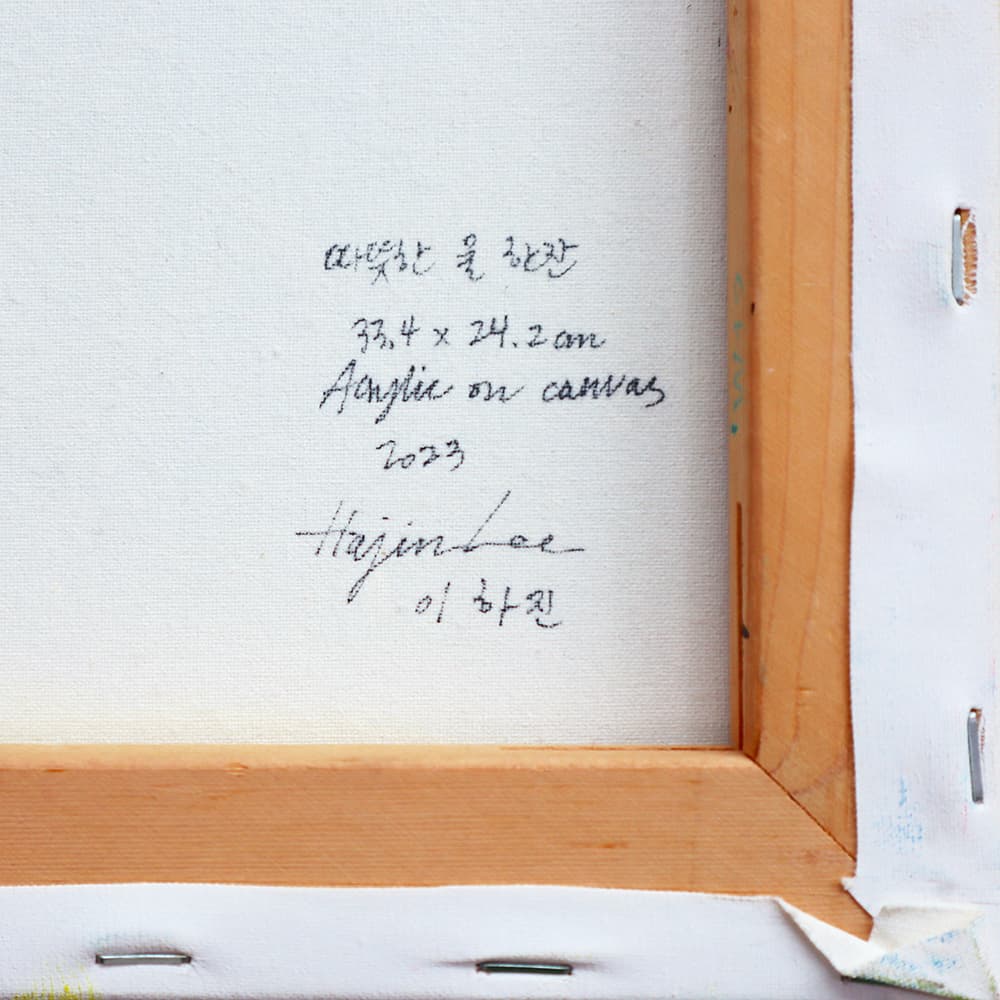 따뜻한 물 한잔
33.4 x 24.2 cm
Acrylic on canvas
2023
Hajin Lee
이 하진